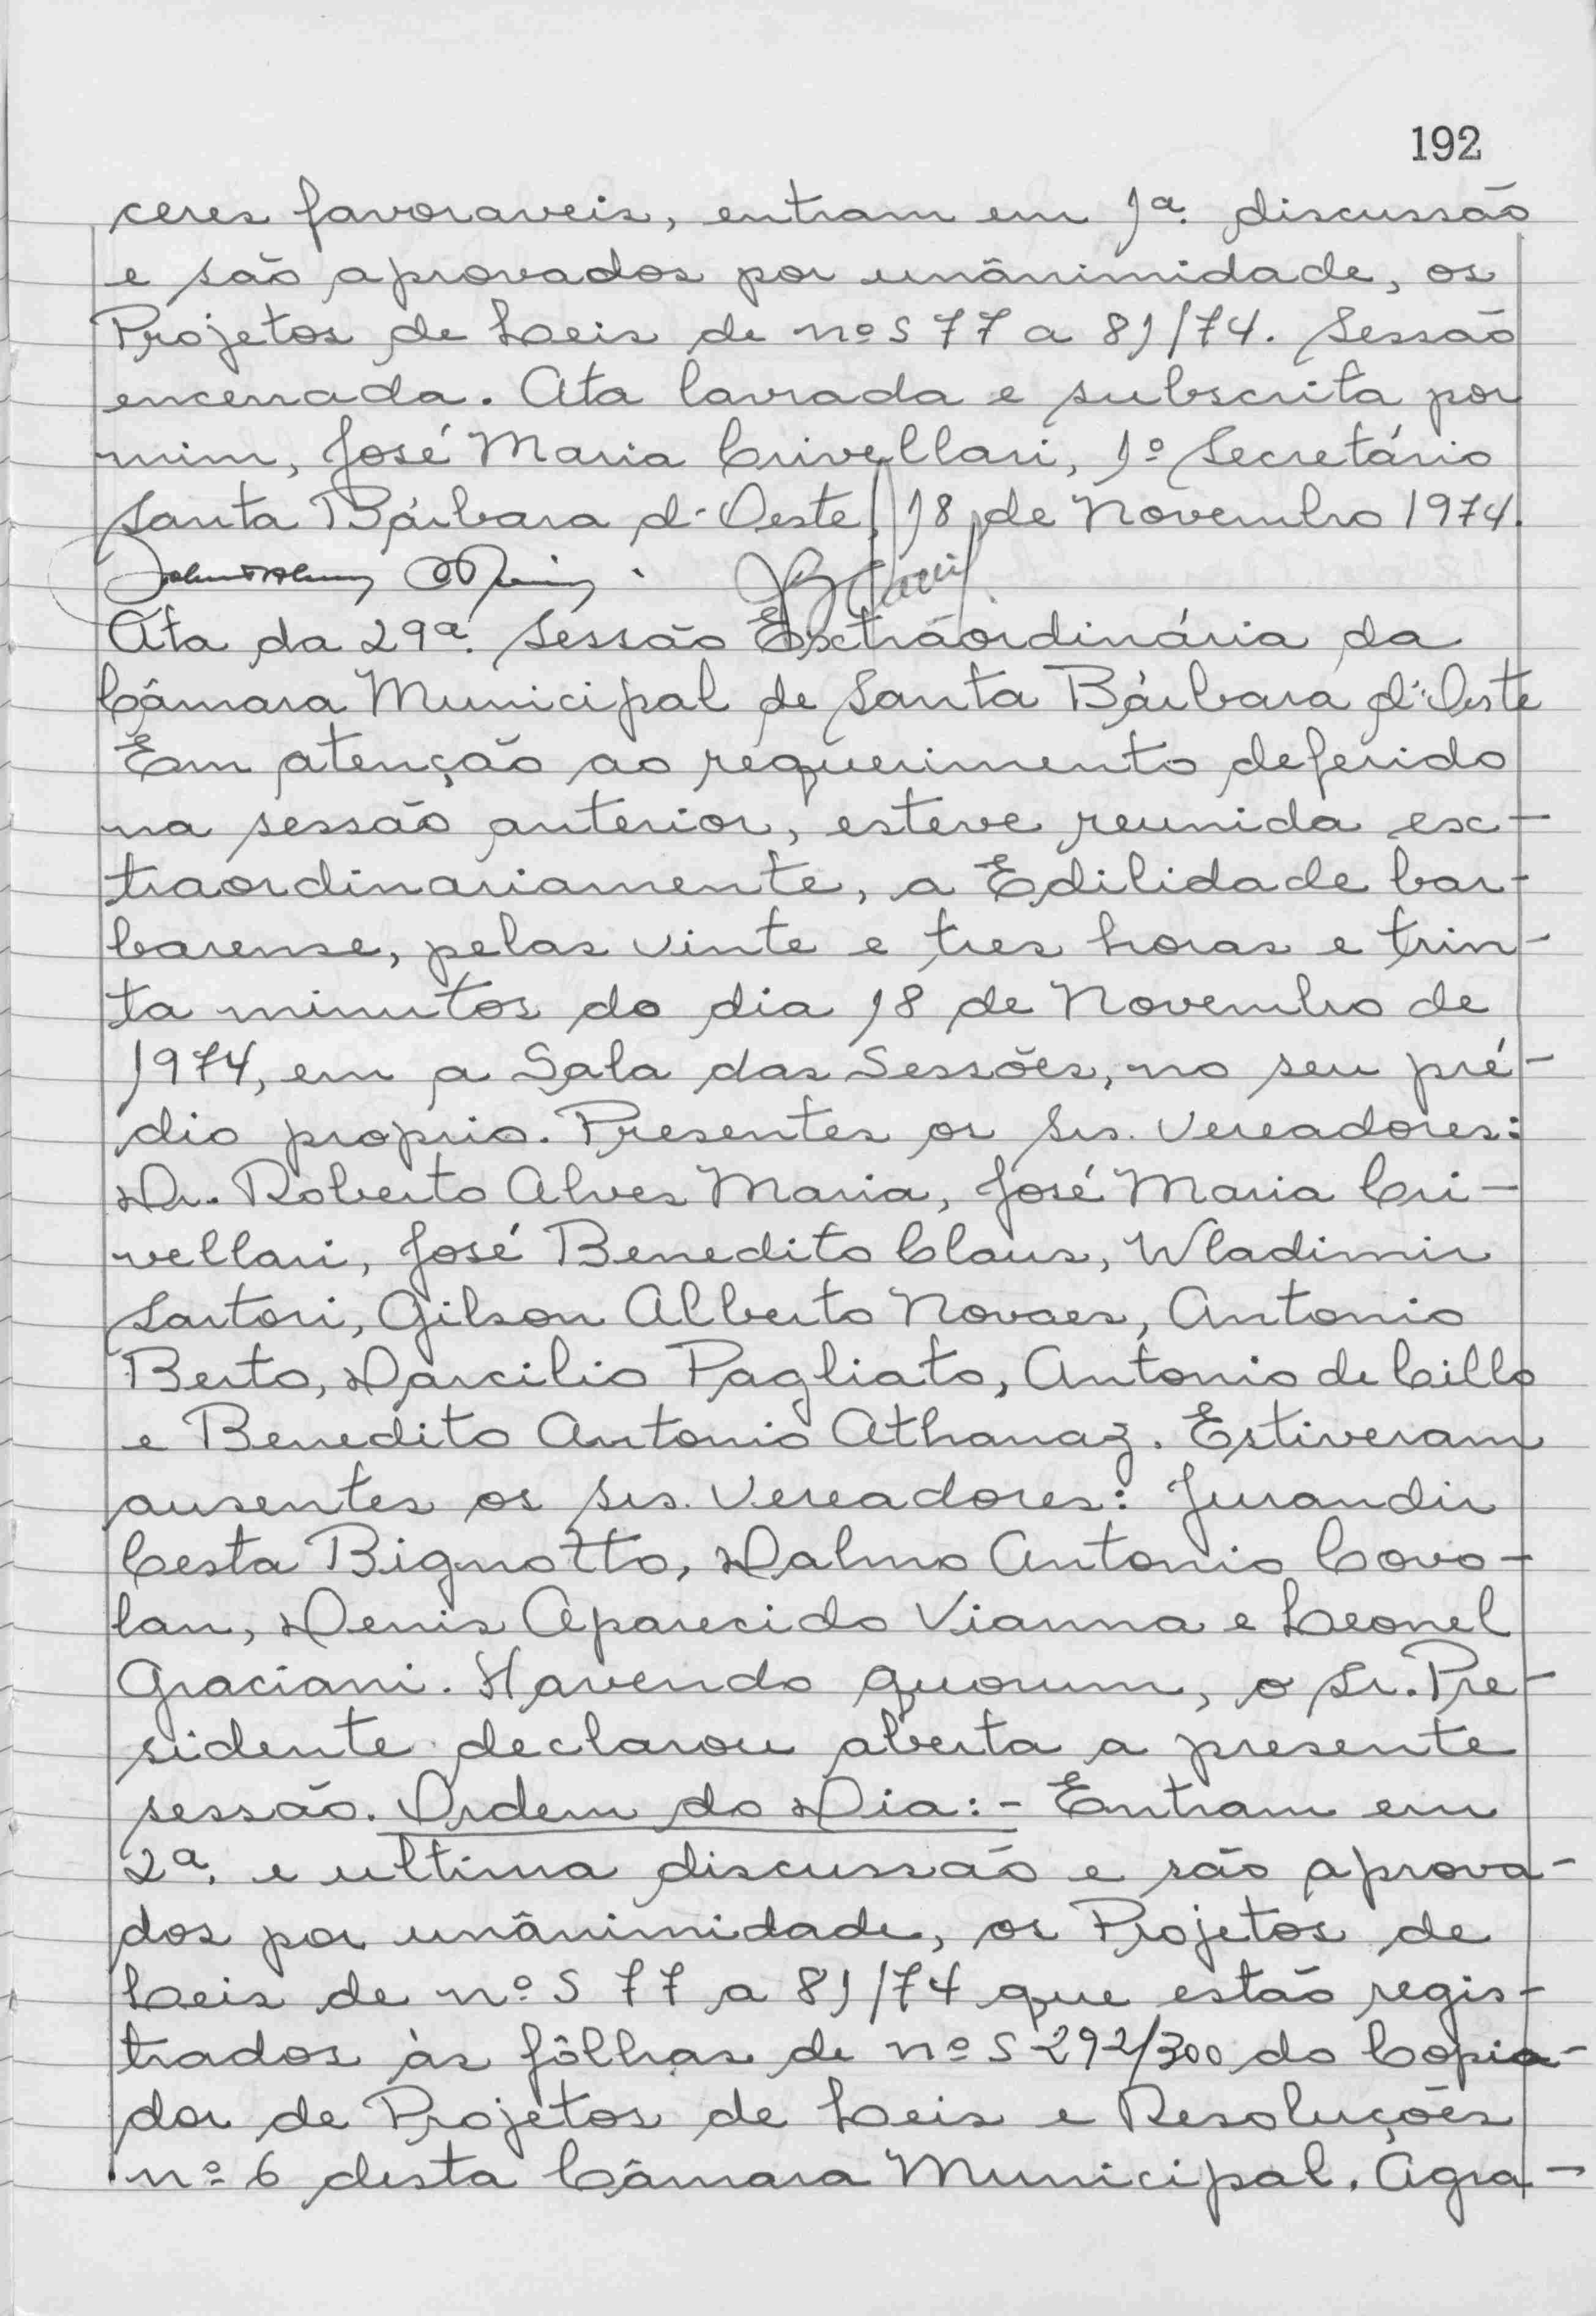 192
ceres favoraveis, entram em 1ª. discussão
e são aprovados por unânimidade, os
Projetos de Leis de nºs 77 a 81/74. Sessão
encerrada. Ata lavrada e subscrita por
mim, José Maria Crivellari, 1º Secretário
Santa Bárbara d'Oeste, 18 de Novembro 1974.
Ata da 29ª. Sessão Extráordinária da
Câmara Municipal de Santa Bárbara d'Oeste
Em atenção ao requerimento deferido
na sessão anterior, esteve reunida ex-
traordinariamente, a Edilidade bar-
barense, pelas vinte e tres horas e trin-
ta minutos do dia 18 de Novembro de
1974, em a Sala das Sessões, no seu pré-
dio proprio. Presentes os Srs. Vereadores:
Dr. Roberto Alves Maria, José Maria Cri-
vellari, José Benedito Claus, Wladimir
Sartori, Gilson Alberto Novaes, Antonio
Berto, Darcilio Pagliato, Antonio de Cillo
e Benedito Antonio Athanaz. Estiveram
ausentes os Srs. Vereadores: Jurandir
Cesta Bignotto, Dalmo Antonio Covo-
lan, Denis Aparecido Vianna e Leonel
Graciani. Havendo quorum, o Sr. Pre-
sidente declarou aberta a presente
sessão. Ordem do Dia:- Entram em
2ª. e ultima discussão e são aprova-
dos por unânimidade, os Projetos de
Leis de nºs 77 a 81/74 que estão regis-
trados às fôlhas de nºs 292/300 do Copia-
dor de Projetos de Leis e Resoluções
nº 6 desta Câmara Municipal. Agra-